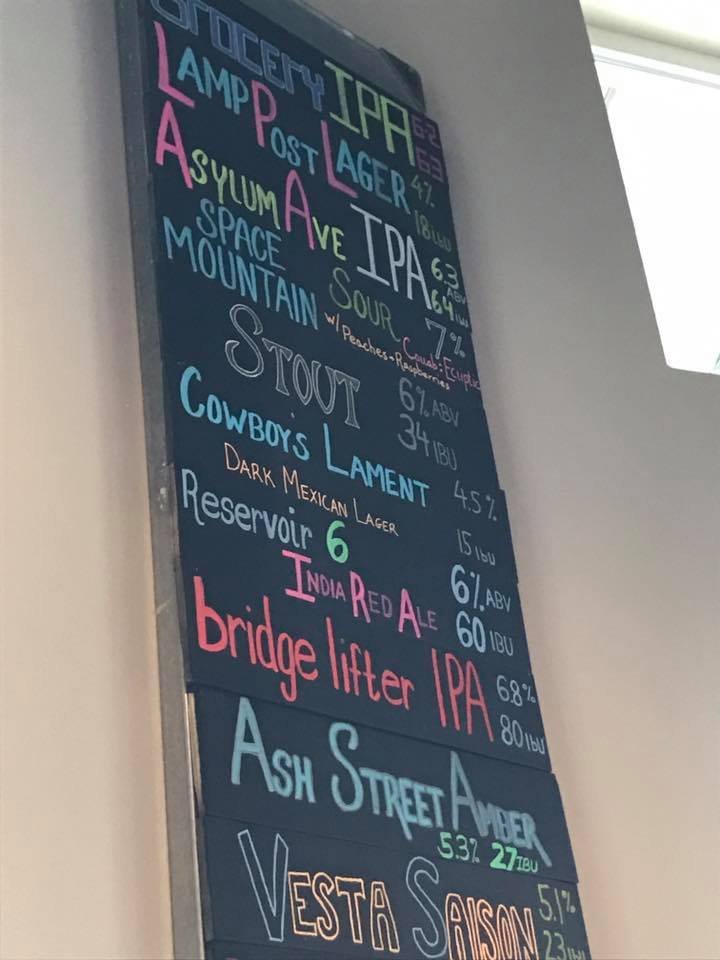 Grocery IPA 6.2
63
LAMP POST LAGER 4%
18 IBU
ASYLUM AVE IPA 6.3 ABV
64 IBU
SPACE MOUNTAIN SOUR 7%
w/ Peaches + Raspberries
STOUT 6% ABV
34 IBU
COWBOY'S LAMENT 4.5%
DARK MEXICAN LAGER 15 IBU
Reservoir 6 6% ABV
INDIA RED ALE 60 IBU
bridge lifter IPA 6.8%
80 IBU
ASH STREET AMBER
5.3% 27 IBU
VESTA SAISON 5.1%
23 IBU